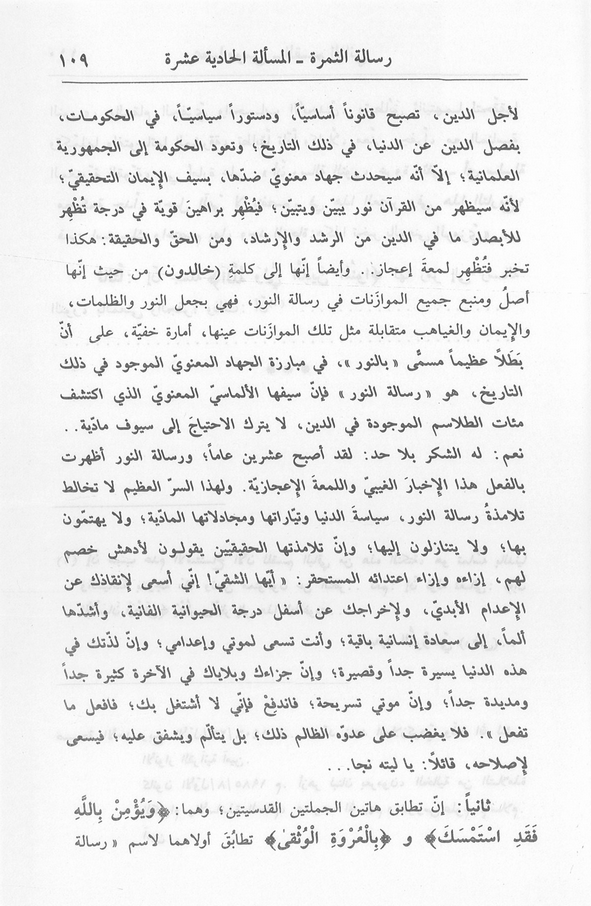 رسالة الثمرة ـ المسألة الحادية عشرة ١٠٩
لأجل الدين، تصبح قانوناً أساسيّاً، ودستوراً سياسيّـاً، في الحكومـات،
بفصل الدين عن الدنيا، في ذلك التاريخ؛ وتعود الحكومة إلى الجمهورية
العلمانية؛ إلاّ أنّه سيحدث جهاد معنويّ ضدّها، بسيف الإيمان التحقيقيّ؛
لأنّه سيظهر من القرآن نور يبيّن ويتبيّن؛ فيُظهر براهينَ قويّة في درجة تُظْهِر
للأبصار ما في الدين من الرشد والإرشاد، ومن الحقّ والحقيقة: هكذا
تخبر فتُظْهِر لمعةَ إعجاز.. وأيضاً إنّها إلى كلمةِ (خالدون) من حيث إنّها
أصلُ ومنبع جميع الموازَنات في رسالة النور، فهي بجعل النور والظلمات،
والإيمان والغياهب متقابلة مثل تلك الموازَنات عينها، أمارة خفيّة، على أنّ
بَطَلاً عظيماً مسمًّى « بالنور »، في مبارزة الجهاد المعنويّ الموجود في ذلك
التاريخ، هو « رسالة النور » فإنّ سيفها الألماسيّ المعنويّ الذي اكتشف
مئات الطلاسم الموجودة في الدين، لا يترك الاحتياجَ إلى سيوف مادّية..
نعم: له الشكر بلا حد: لقد أصبح عشرين عاماً؛ ورسالة النور أظهرت
بالفعل هذا الإخبارَ الغيبيّ واللمعةَ الإعجازيّة. ولهذا السرّ العظيم لا تخالط
تلامذةُ رسالة النور، سياسةَ الدنيا وتيّاراتها ومجادلاتها المادّية؛ ولا يهتمّون
بها؛ ولا يتنازلون إليها؛ وإنّ تلامذتها الحقيقيّين يقولـون لأدهشِ خصم
لهم، إزاءه وإزاء اعتدائه المستحقر: « أيّها الشقيّ! إنّي أسعى لإنقاذك عن
الإعدام الأبديّ، ولإخراجك عن أسفل درجة الحيوانية الفانية، وأشدّها
ألماً، إلى سعادة إنسانية باقية؛ وأنت تسعى لموتي وإعدامي؛ وإنّ لذّتك في
هذه الدنيا يسيرة جداً وقصيرة؛ وإنّ جزاءك وبلاياك في الآخرة كثيرة جداً
ومديدة جداً؛ وإنّ موتي تسريحة؛ فاندفِعْ فإنّي لا أشتغل بك؛ فافعل ما
تفعل ». فلا يغضب على عدوّه الظالم ذلك؛ بل يتألّم ويشفق عليه؛ فيسعى
لإصلاحه، قائلاً: يا ليته نجا...
ثانياً: إنّ تطابق هاتين الجملتين القدسيتين؛ وهما: ﴿وَيُؤْمِنْ بِاللَّهِ
فَقَدِ اسْتَمْسَكَ﴾ و ﴿بِالْعُرْوَةِ الْوُثْقىٰ﴾ تطابُقَ أولاهما لاسم « رسالة